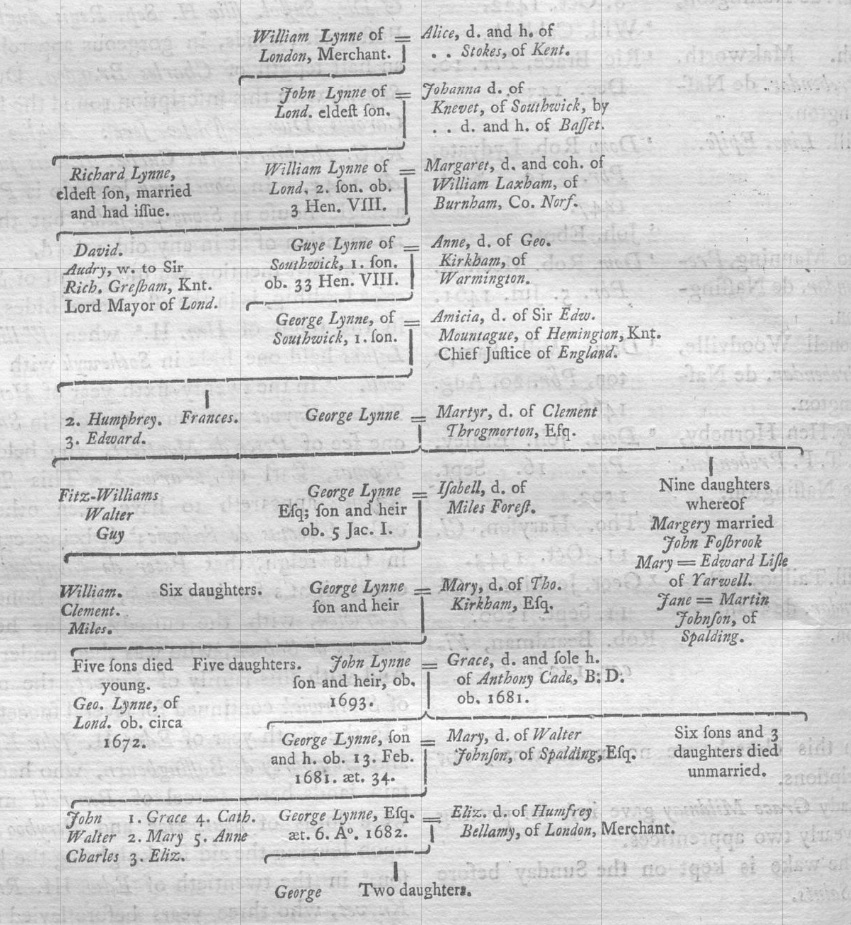 William Lynne of = Alice, d. and h. of
London, Merchant. . . Stokes, of Kent.
John Lynne of = Johanna d. of
Lond. eldeſt ſon. Knevet, of Southwick, by
. . d. and h. of Baſſet.
Richard Lynne,
eldeſt ſon, married
and had iſſue.
William Lynne of = Margaret, d. and coh. of
Lond. 2. ſon. ob. William Laxham, of
3 Hen. VIII. Burnham, Co. Norf.
David.
Audry, w. to Sir
Rich. Greſham, Knt.
Lord Mayor of Lond.
Guye Lynne of = Anne, d. of Geo.
Southwick, 1. ſon. Kirkham, of
ob. 33 Hen. VIII. Warmington.
George Lynne, of = Amicia, d. of Sir Edw.
Southwick, 1. ſon. Mountague, of Hemington, Knt.
Chief Juſtice of England.
2. Humphrey. Frances.
3. Edward.
George Lynne = Martyr, d. of Clement
Throgmorton, Eſq.
Fitz-Williams
Walter
Guy
George Lynne = Iſabell, d. of
Eſq; ſon and heir Miles Foreſt.
ob. 5 Jac. I.
Nine daughters
whereof
Margery married
John Foſbrook
Mary = Edward Liſle
of Yarwell.
Jane = Martin
Johnſon, of
Spalding.
William. Six daughters.
Clement.
Miles.
George Lynne = Mary, d. of Tho.
ſon and heir Kirkham, Eſq.
Five ſons died Five daughters.
young.
Geo. Lynne, of
Lond. ob. circa
1672.
John Lynne = Grace, d. and ſole h.
ſon and heir, ob. of Anthony Cade, B. D.
1693. ob. 1681.
George Lynne, ſon = Mary, d. of Walter
and h. ob. 13. Feb. Johnſon, of Spalding, Eſq.
1681. æt. 34.
Six ſons and 3
daughters died
unmarried.
John 1. Grace 4. Cath.
Walter 2. Mary 5. Anne
Charles 3. Eliz.
George Lynne, Eſq. = Eliz. d. of Humfrey
æt. 6. Aº. 1682. Bellamy, of London, Merchant.
George Two daughters.